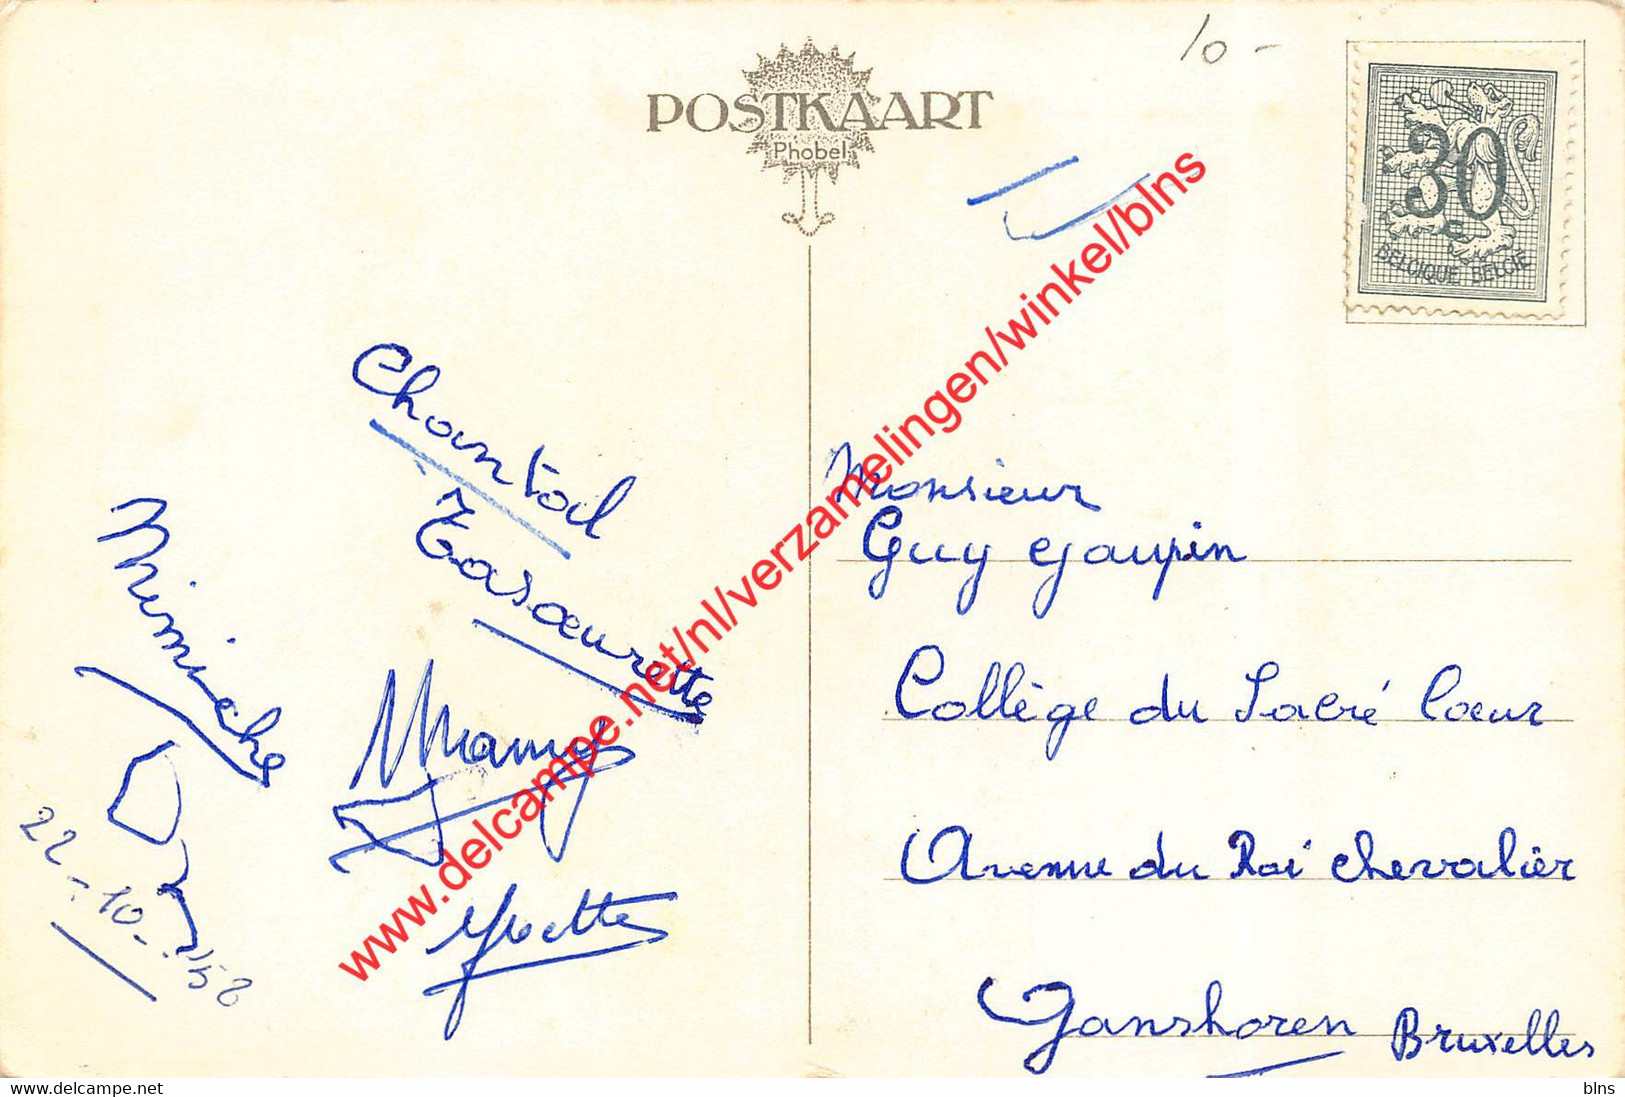 10-
POSTKAART
Phobel
30
BELGIQUE BELGIË
Chantal
Ta sœurette
Mimiche
Mamy
Yvette
22-10-58
Monsieur
Guy Gaupin
Collège du Sacré Cœur
Avenue du Roi Chevalier
Ganshoren Bruxelles
www.delcampe.net/nl/verzamelingen/winkel/blns
www.delcampe.net
blns